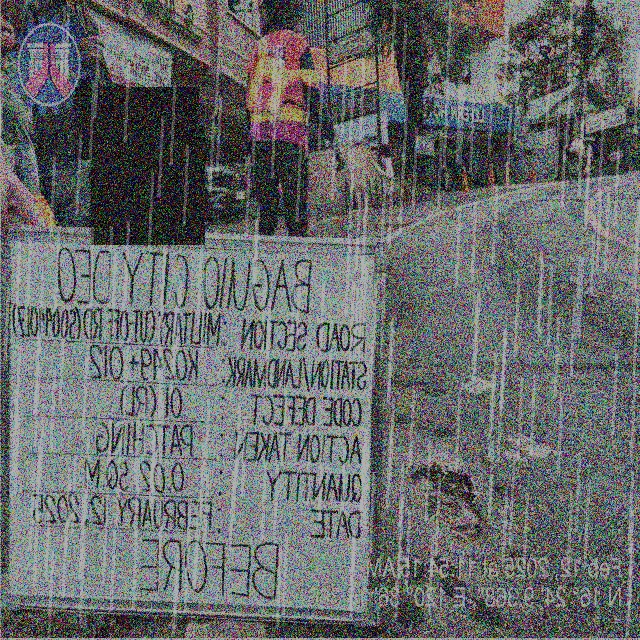 BAGUIO CITY DEO
ROAD SECTION : MILITARY CUT-OFF RD (S00940LZ)
STATION/LANDMARK : K0249+012
CODE DEFECT : 01 (RL)
ACTION TAKEN : PATCHING
QUANTITY : 0.02 SQ.M
DATE : FEBRUARY 12, 2025
BEFORE
Feb 12, 2025 at 11:54:15 AM
N 16° 24' 9.368", E 120°